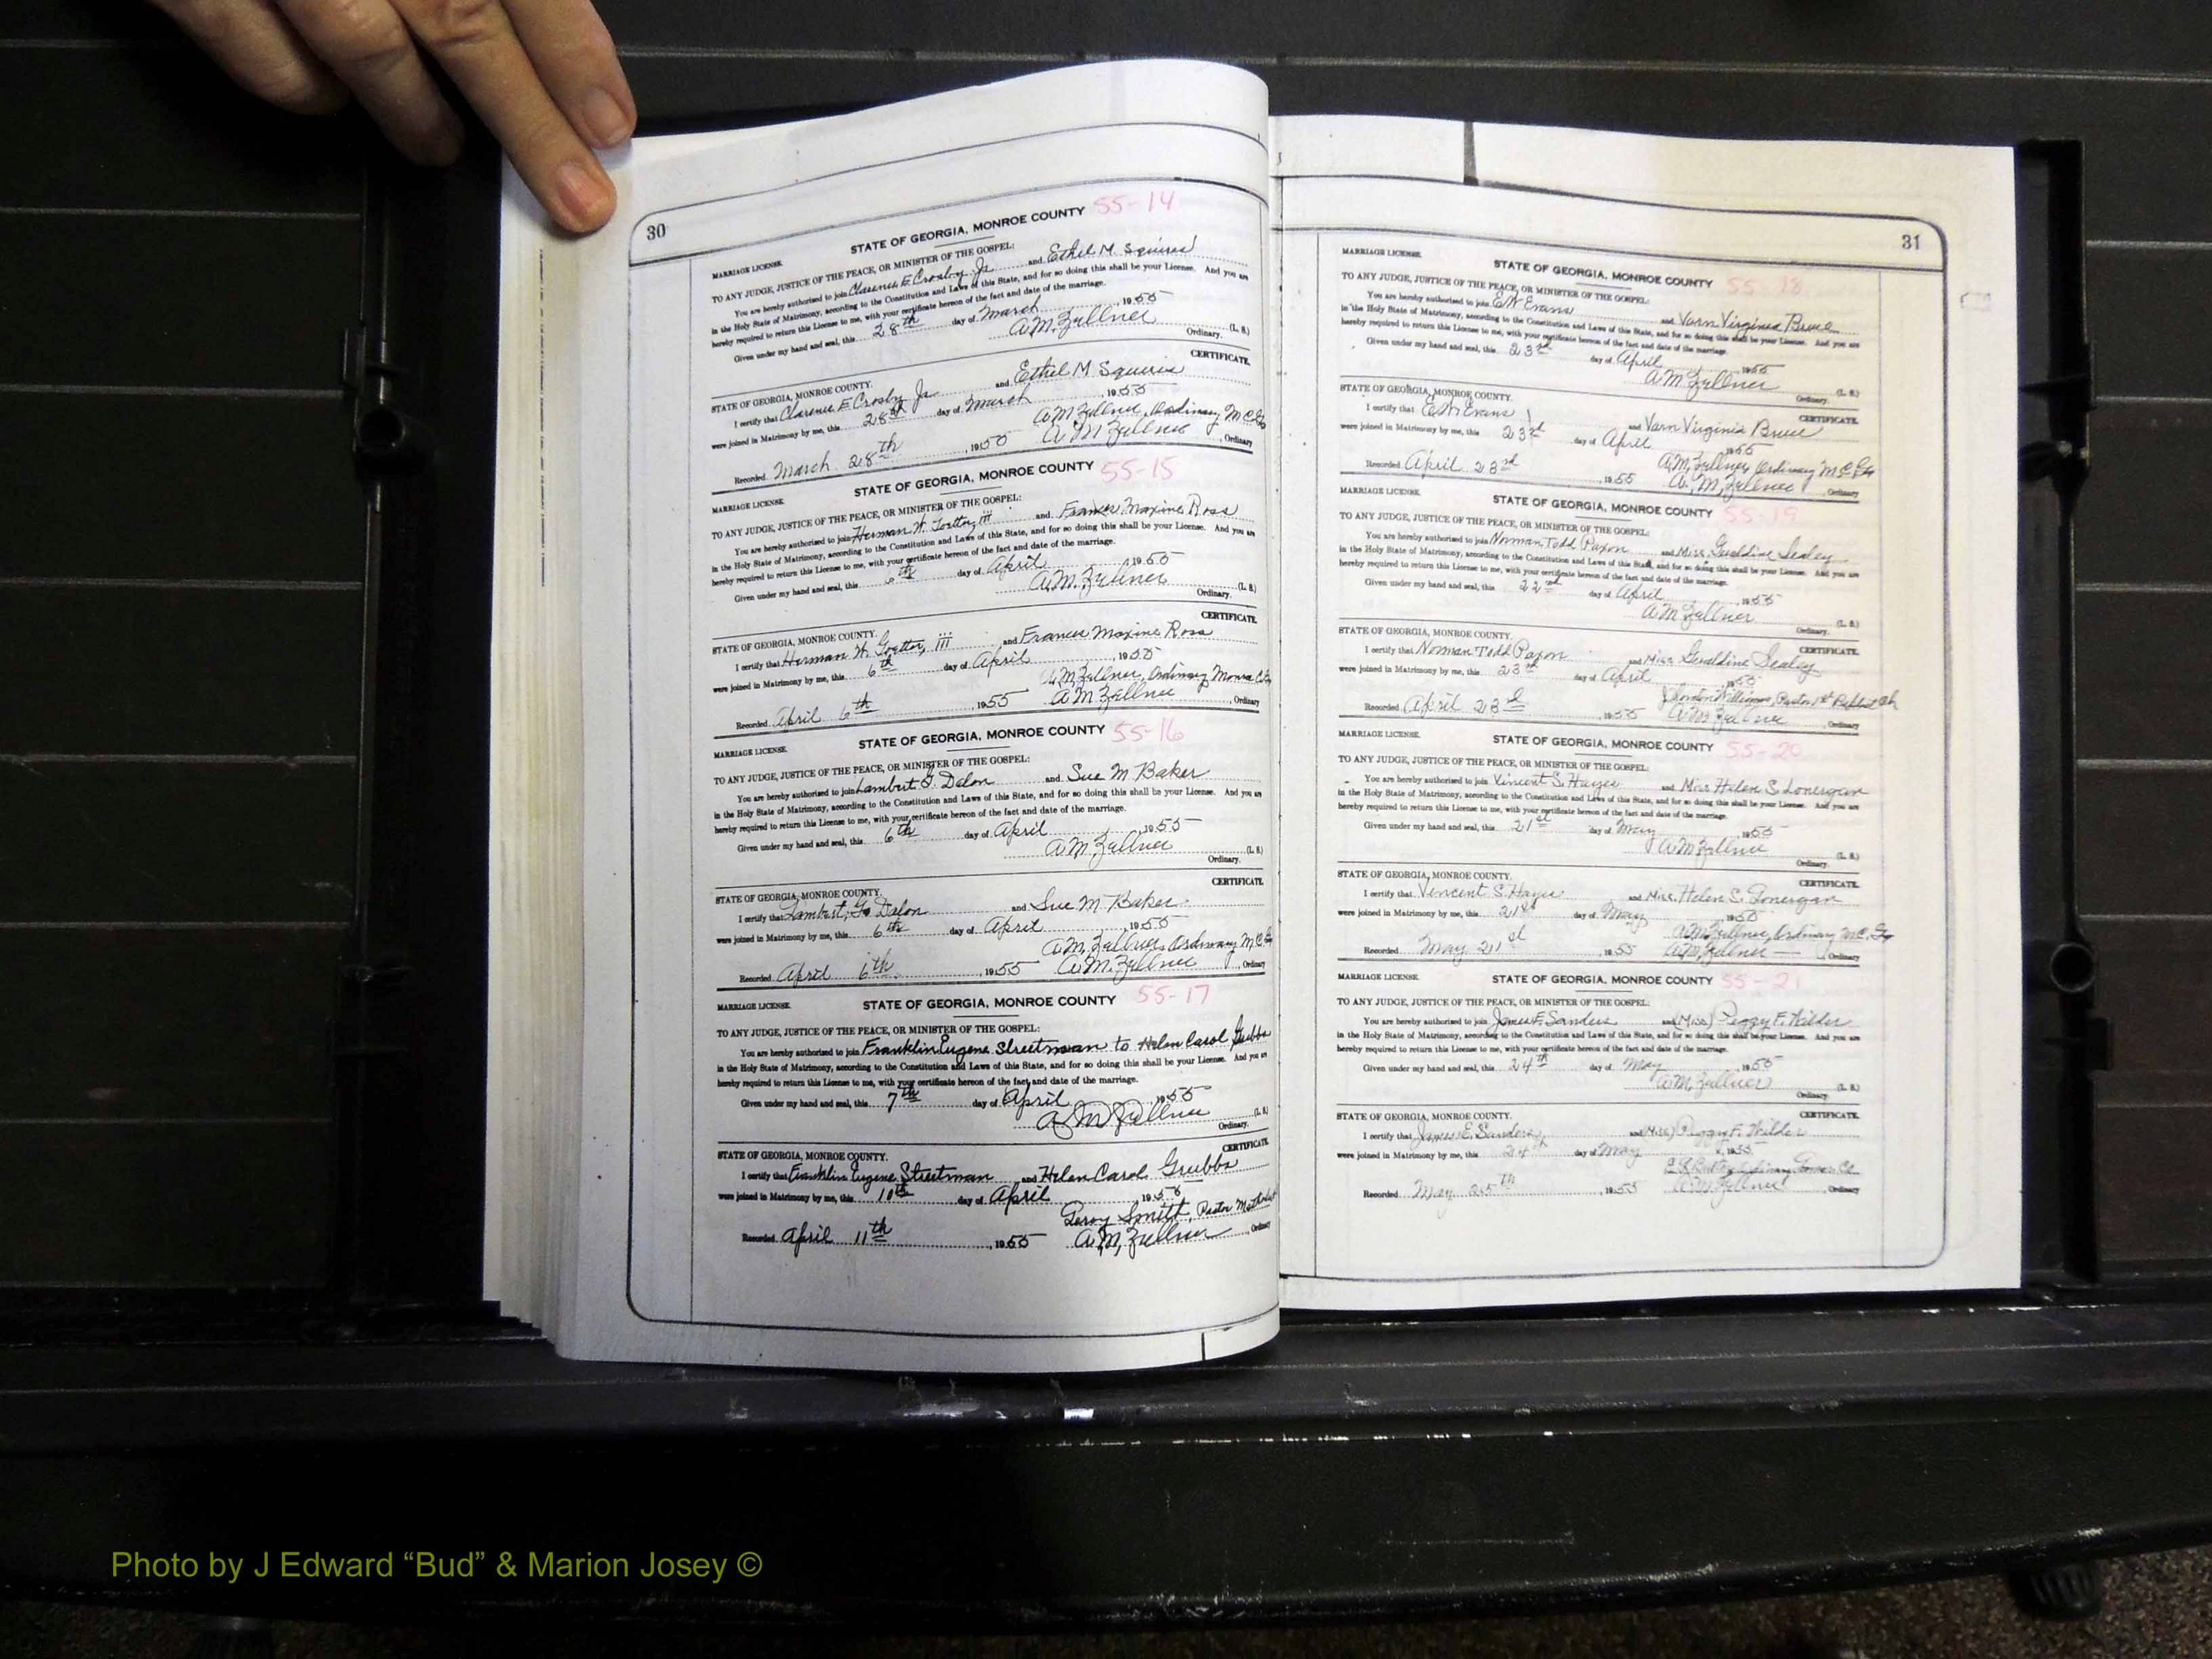 30
STATE OF GEORGIA, MONROE COUNTY 55-14
MARRIAGE LICENSE.
TO ANY JUDGE, JUSTICE OF THE PEACE, OR MINISTER OF THE GOSPEL:
You are hereby authorized to join Clarence E. Crosby Jr. and Ethel M Squires
in the Holy State of Matrimony, according to the Constitution and Laws of this State, and for so doing this shall be your License. And you are
hereby required to return this License to me, with your certificate hereon of the fact and date of the marriage.
Given under my hand and seal, this 28th day of March, 1955
A.M. Zellner (L. S.)
Ordinary.
CERTIFICATE.
STATE OF GEORGIA, MONROE COUNTY.
I certify that Clarence E Crosby Jr and Ethel M Squires
were joined in Matrimony by me, this 28th day of March, 1955
A.M. Zellner, Ordinary M C Ga
Recorded March 28th, 1955 A M Zellner, Ordinary
STATE OF GEORGIA, MONROE COUNTY 55-15
MARRIAGE LICENSE.
TO ANY JUDGE, JUSTICE OF THE PEACE, OR MINISTER OF THE GOSPEL:
You are hereby authorized to join Herman W. iii and Frances Maxine Ross
in the Holy State of Matrimony, according to the Constitution and Laws of this State, and for so doing this shall be your License. And you are
hereby required to return this License to me, with your certificate hereon of the fact and date of the marriage.
Given under my hand and seal, this 6th day of April, 1955
A.M. Zellner (L. S.)
Ordinary.
CERTIFICATE.
STATE OF GEORGIA, MONROE COUNTY.
I certify that Herman W. iii and Frances Maxine Ross
were joined in Matrimony by me, this 6th day of April, 1955
A.M. Zellner, Ordinary Monroe
Recorded April 6th, 1955 A M Zellner, Ordinary
STATE OF GEORGIA, MONROE COUNTY 55-16
MARRIAGE LICENSE.
TO ANY JUDGE, JUSTICE OF THE PEACE, OR MINISTER OF THE GOSPEL:
You are hereby authorized to join Lambert G. Dalon and Sue M Baker
in the Holy State of Matrimony, according to the Constitution and Laws of this State, and for so doing this shall be your License. And you are
hereby required to return this License to me, with your certificate hereon of the fact and date of the marriage.
Given under my hand and seal, this 6th day of April, 1955
A.M. Zellner (L. S.)
Ordinary.
CERTIFICATE.
STATE OF GEORGIA, MONROE COUNTY.
I certify that Lambert G. Dalon and Sue M Baker
were joined in Matrimony by me, this 6th day of April, 1955
A.M. Zellner, Ordinary M C Ga
Recorded April 6th, 1955 A.M. Zellner, Ordinary
STATE OF GEORGIA, MONROE COUNTY 55-17
MARRIAGE LICENSE.
TO ANY JUDGE, JUSTICE OF THE PEACE, OR MINISTER OF THE GOSPEL:
You are hereby authorized to join Franklin Eugene Streetman to Helen Carol Grubbs
in the Holy State of Matrimony, according to the Constitution and Laws of this State, and for so doing this shall be your License. And you are
hereby required to return this License to me, with your certificate hereon of the fact and date of the marriage.
Given under my hand and seal, this 7th day of April, 1955
A M Zellner (L. S.)
Ordinary.
CERTIFICATE.
STATE OF GEORGIA, MONROE COUNTY.
I certify that Franklin Eugene Streetman and Helen Carol Grubbs
were joined in Matrimony by me, this 10th day of April, 195
Leroy Smith, Pastor Methodist
Recorded April 11th, 1955 A.M. Zellner, Ordinary
31
MARRIAGE LICENSE. STATE OF GEORGIA, MONROE COUNTY 55-18
TO ANY JUDGE, JUSTICE OF THE PEACE, OR MINISTER OF THE GOSPEL:
You are hereby authorized to join E.W. Evans and Varn Virginia Bruce
in the Holy State of Matrimony, according to the Constitution and Laws of this State, and for so doing this shall be your License. And you are
hereby required to return this License to me, with your certificate hereon of the fact and date of the marriage.
Given under my hand and seal, this 23rd day of April, 1955
A M Zellner (L. S.)
Ordinary.
STATE OF GEORGIA, MONROE COUNTY. CERTIFICATE.
I certify that E.W. Evans and Varn Virginia Bruce
were joined in Matrimony by me, this 23rd day of April 1955
A.M. Zellner, Ordinary M C Ga
Recorded April 23rd, 1955 A.M. Zellner, Ordinary
MARRIAGE LICENSE. STATE OF GEORGIA, MONROE COUNTY 55-19
TO ANY JUDGE, JUSTICE OF THE PEACE, OR MINISTER OF THE GOSPEL:
You are hereby authorized to join Norman Todd Paxon and Miss Geraldine Sealey
in the Holy State of Matrimony, according to the Constitution and Laws of this State, and for so doing this shall be your License. And you are
hereby required to return this License to me, with your certificate hereon of the fact and date of the marriage.
Given under my hand and seal, this 22nd day of April, 1955
A M Zellner (L. S.)
Ordinary.
STATE OF GEORGIA, MONROE COUNTY. CERTIFICATE.
I certify that Norman Todd Paxon and Miss Geraldine Sealey
were joined in Matrimony by me, this 23rd day of April 1955
Williams, Pastor 1st Baptist Ch
Recorded April 23rd, 1955 A M Zellner, Ordinary
MARRIAGE LICENSE. STATE OF GEORGIA, MONROE COUNTY 55-20
TO ANY JUDGE, JUSTICE OF THE PEACE, OR MINISTER OF THE GOSPEL:
You are hereby authorized to join Vincent S. Hayes and Miss Helen S Lonergan
in the Holy State of Matrimony, according to the Constitution and Laws of this State, and for so doing this shall be your License. And you are
hereby required to return this License to me, with your certificate hereon of the fact and date of the marriage.
Given under my hand and seal, this 21st day of May 1955
A M Zellner (L. S.)
Ordinary.
STATE OF GEORGIA, MONROE COUNTY. CERTIFICATE.
I certify that Vincent S. Hayes and Miss Helen S. Lonergan
were joined in Matrimony by me, this 21st day of May 1955
A M Zellner, Ordinary M C. Ga
Recorded May 21st, 1955 A M Zellner Ordinary
MARRIAGE LICENSE. STATE OF GEORGIA, MONROE COUNTY 55-21
TO ANY JUDGE, JUSTICE OF THE PEACE, OR MINISTER OF THE GOSPEL:
You are hereby authorized to join James E. Sanders and (Miss) Peggy F. Wilder
in the Holy State of Matrimony, according to the Constitution and Laws of this State, and for so doing this shall be your License. And you are
hereby required to return this License to me, with your certificate hereon of the fact and date of the marriage.
Given under my hand and seal, this 24th day of May, 1955
A.M. Zellner (L. S.)
Ordinary.
STATE OF GEORGIA, MONROE COUNTY. CERTIFICATE.
I certify that James E. Sanders and (Miss) Peggy F. Wilder
were joined in Matrimony by me, this 24th day of May, 1955
Ordinary
Recorded May 25th, 1955 A M Zellner, Ordinary
Photo by J Edward “Bud” & Marion Josey ©